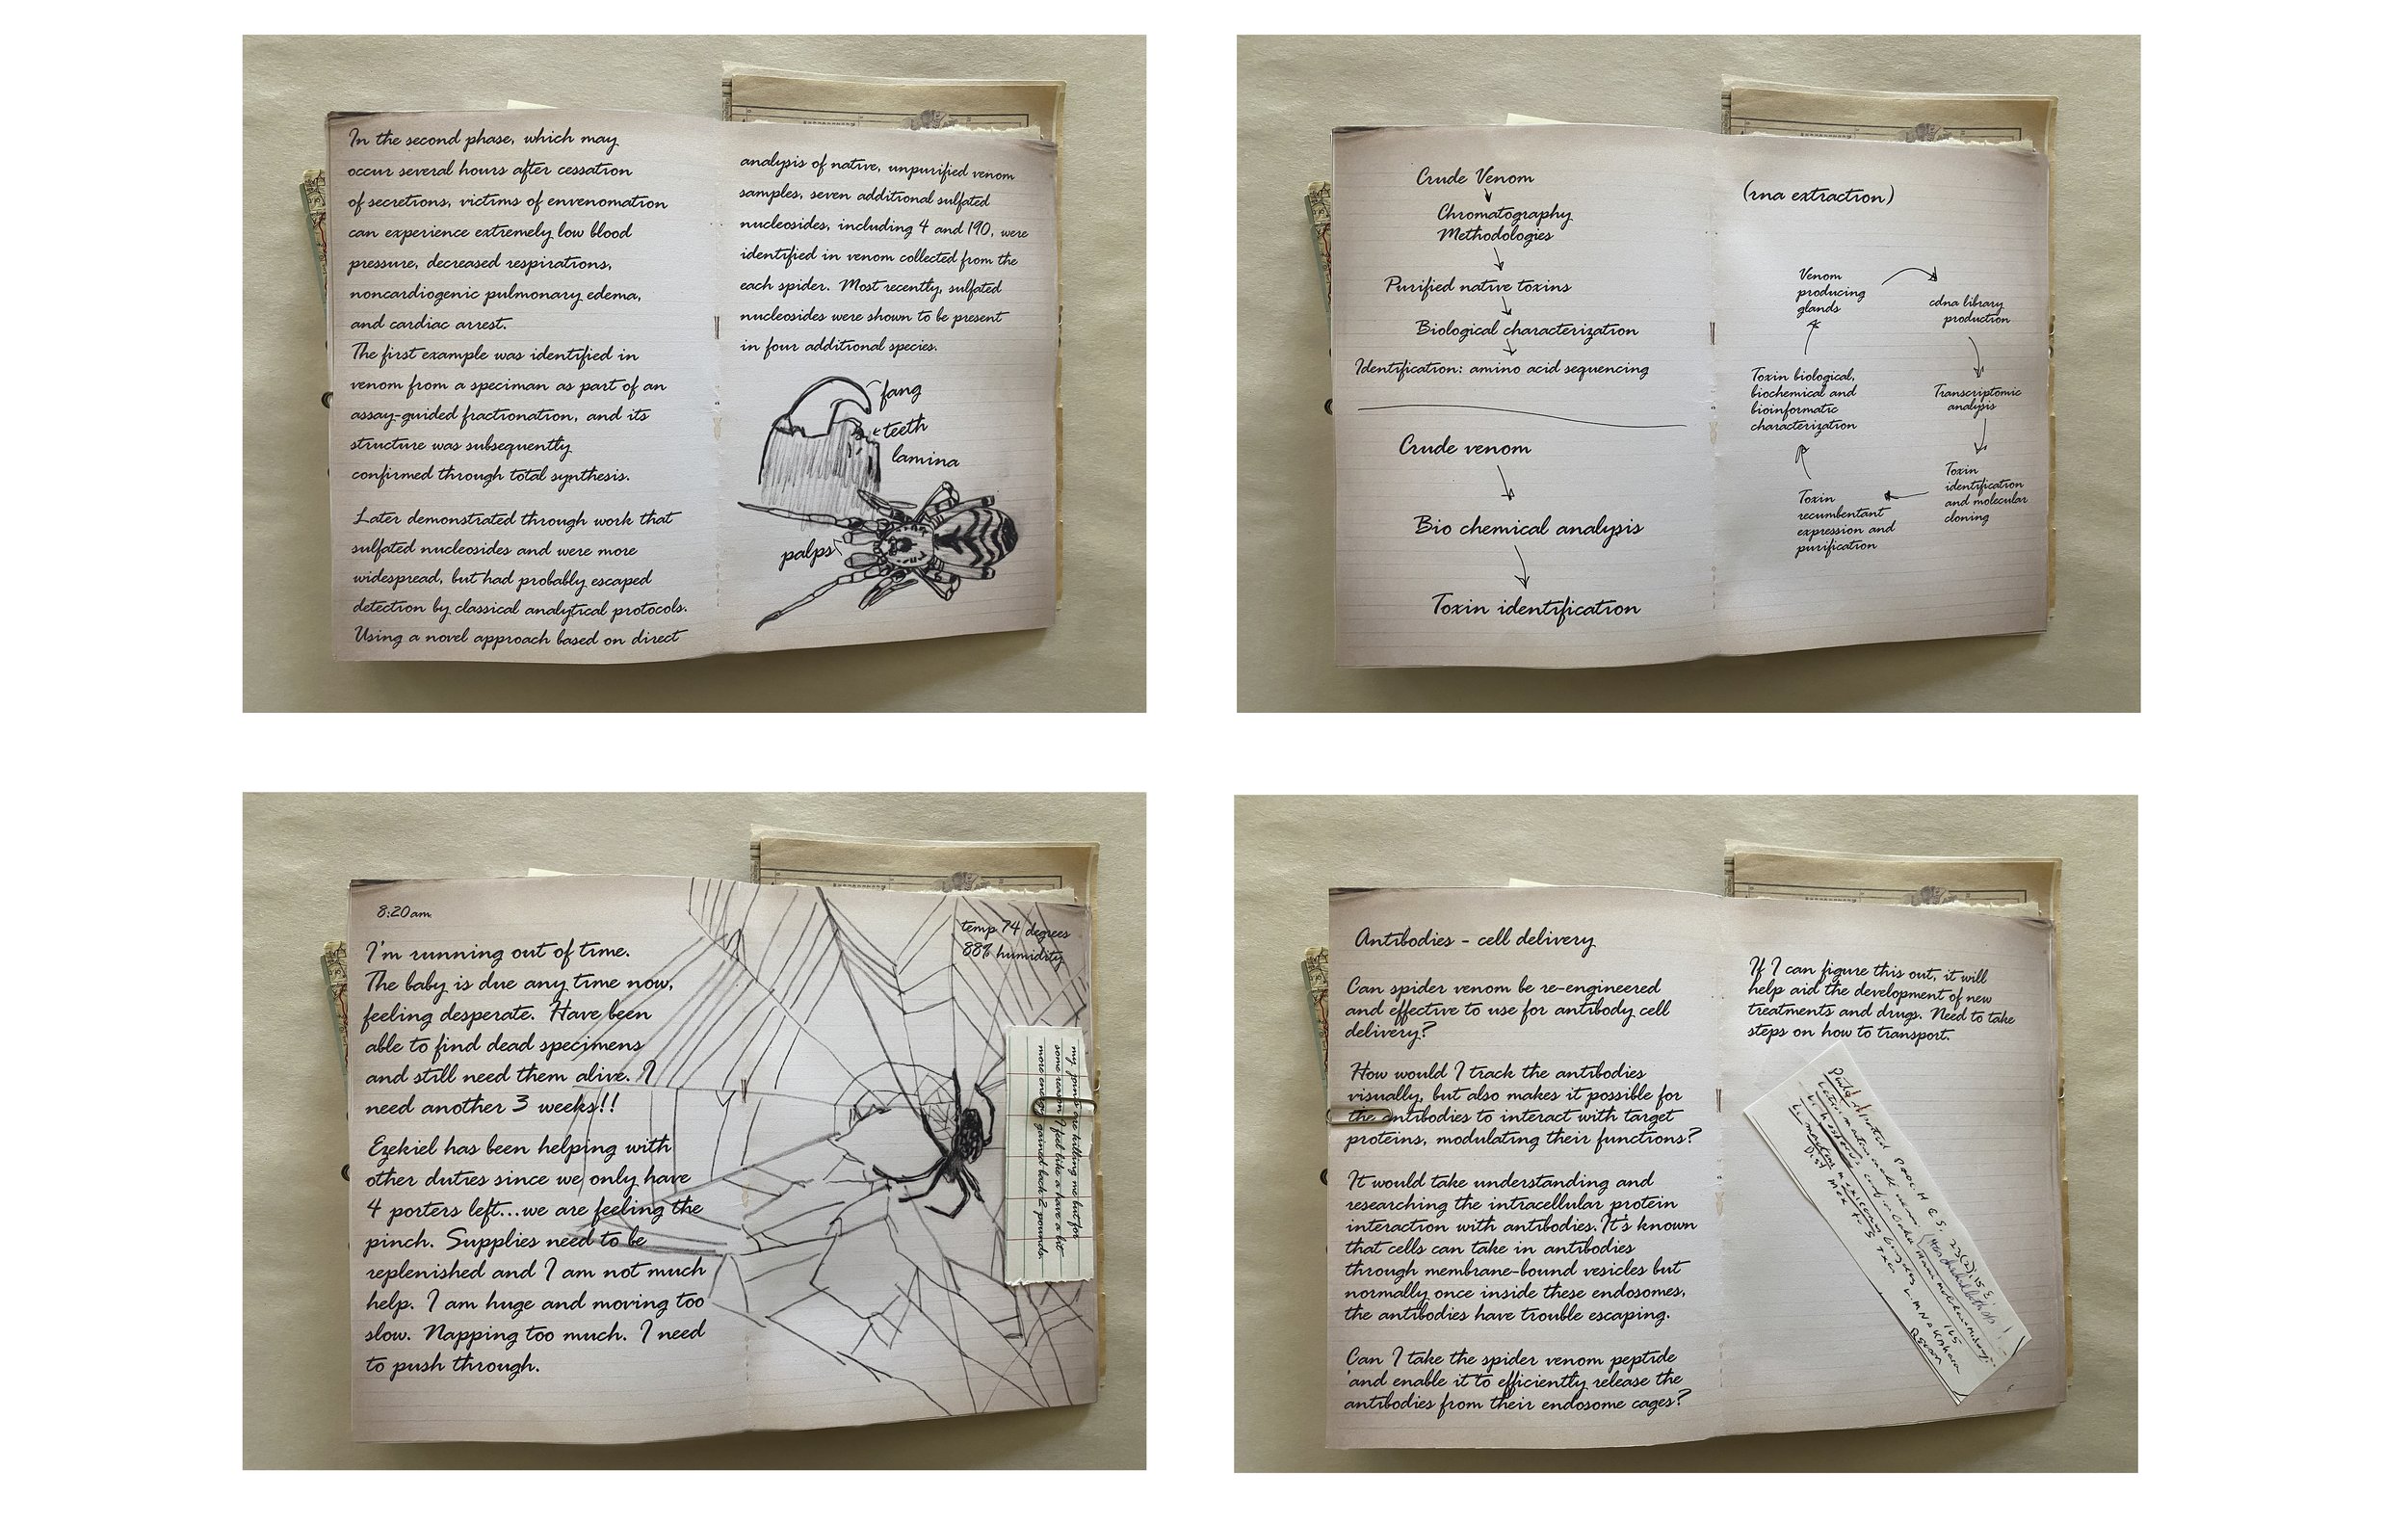 In the second phase, which may
occur several hours after cessation
of secretions, victims of envenomation
can experience extremely low blood
pressure, decreased respirations,
noncardiogenic pulmonary edema,
and cardiac arrest.
The first example was identified in
venom from a speciman as part of an
assay-guided fractionation, and its
structure was subsequently
confirmed through total synthesis.
Later demonstrated through work that
sulfated nucleosides and were more
widespread, but had probably escaped
detection by classical analytical protocols.
Using a novel approach based on direct
analysis of native, unpurified venom
samples, seven additional sulfated
nucleosides, including 4 and 190, were
identified in venom collected from the
each spider. Most recently, sulfated
nucleosides were shown to be present
in four additional species.
fang
teeth
lamina
palps
Crude Venom
Chromatography
Methodologies
Purified native toxins
Biological characterization
Identification: amino acid sequencing
Crude venom
Bio chemical analysis
Toxin identification
(rna extraction)
Venom
producing
glands
cdna library
production
Transcriptomic
analysis
Toxin
identification
and molecular
cloning
Toxin
recumbentant
expression and
purification
Toxin biological,
biochemical and
bioinformatic
characterization
8:20am
I'm running out of time.
The baby is due any time now,
feeling desperate. Have been
able to find dead specimens
and still need them alive. I
need another 3 weeks!!
Ezekiel has been helping with
other duties since we only have
4 porters left...we are feeling the
pinch. Supplies need to be
replenished and I am not much
help. I am huge and moving too
slow. Napping too much. I need
to push through.
temp 74 degrees
88% humidity
my joints are killing me but for
some reason I feel like a have a bit
more energy gained back 2 pounds.
Antibodies - cell delivery
Can spider venom be re-engineered
and effective to use for antibody cell
delivery?
How would I track the antibodies
visually, but also makes it possible for
the antibodies to interact with target
proteins, modulating their functions?
It would take understanding and
researching the intracellular protein
interaction with antibodies. It's known
that cells can take in antibodies
through membrane-bound vesicles but
normally once inside these endosomes,
the antibodies have trouble escaping.
Can I take the spider venom peptide
'and enable it to efficiently release the
antibodies from their endosome cages?
If I can figure this out, it will
help aid the development of new
treatments and drugs. Need to take
steps on how to transport.